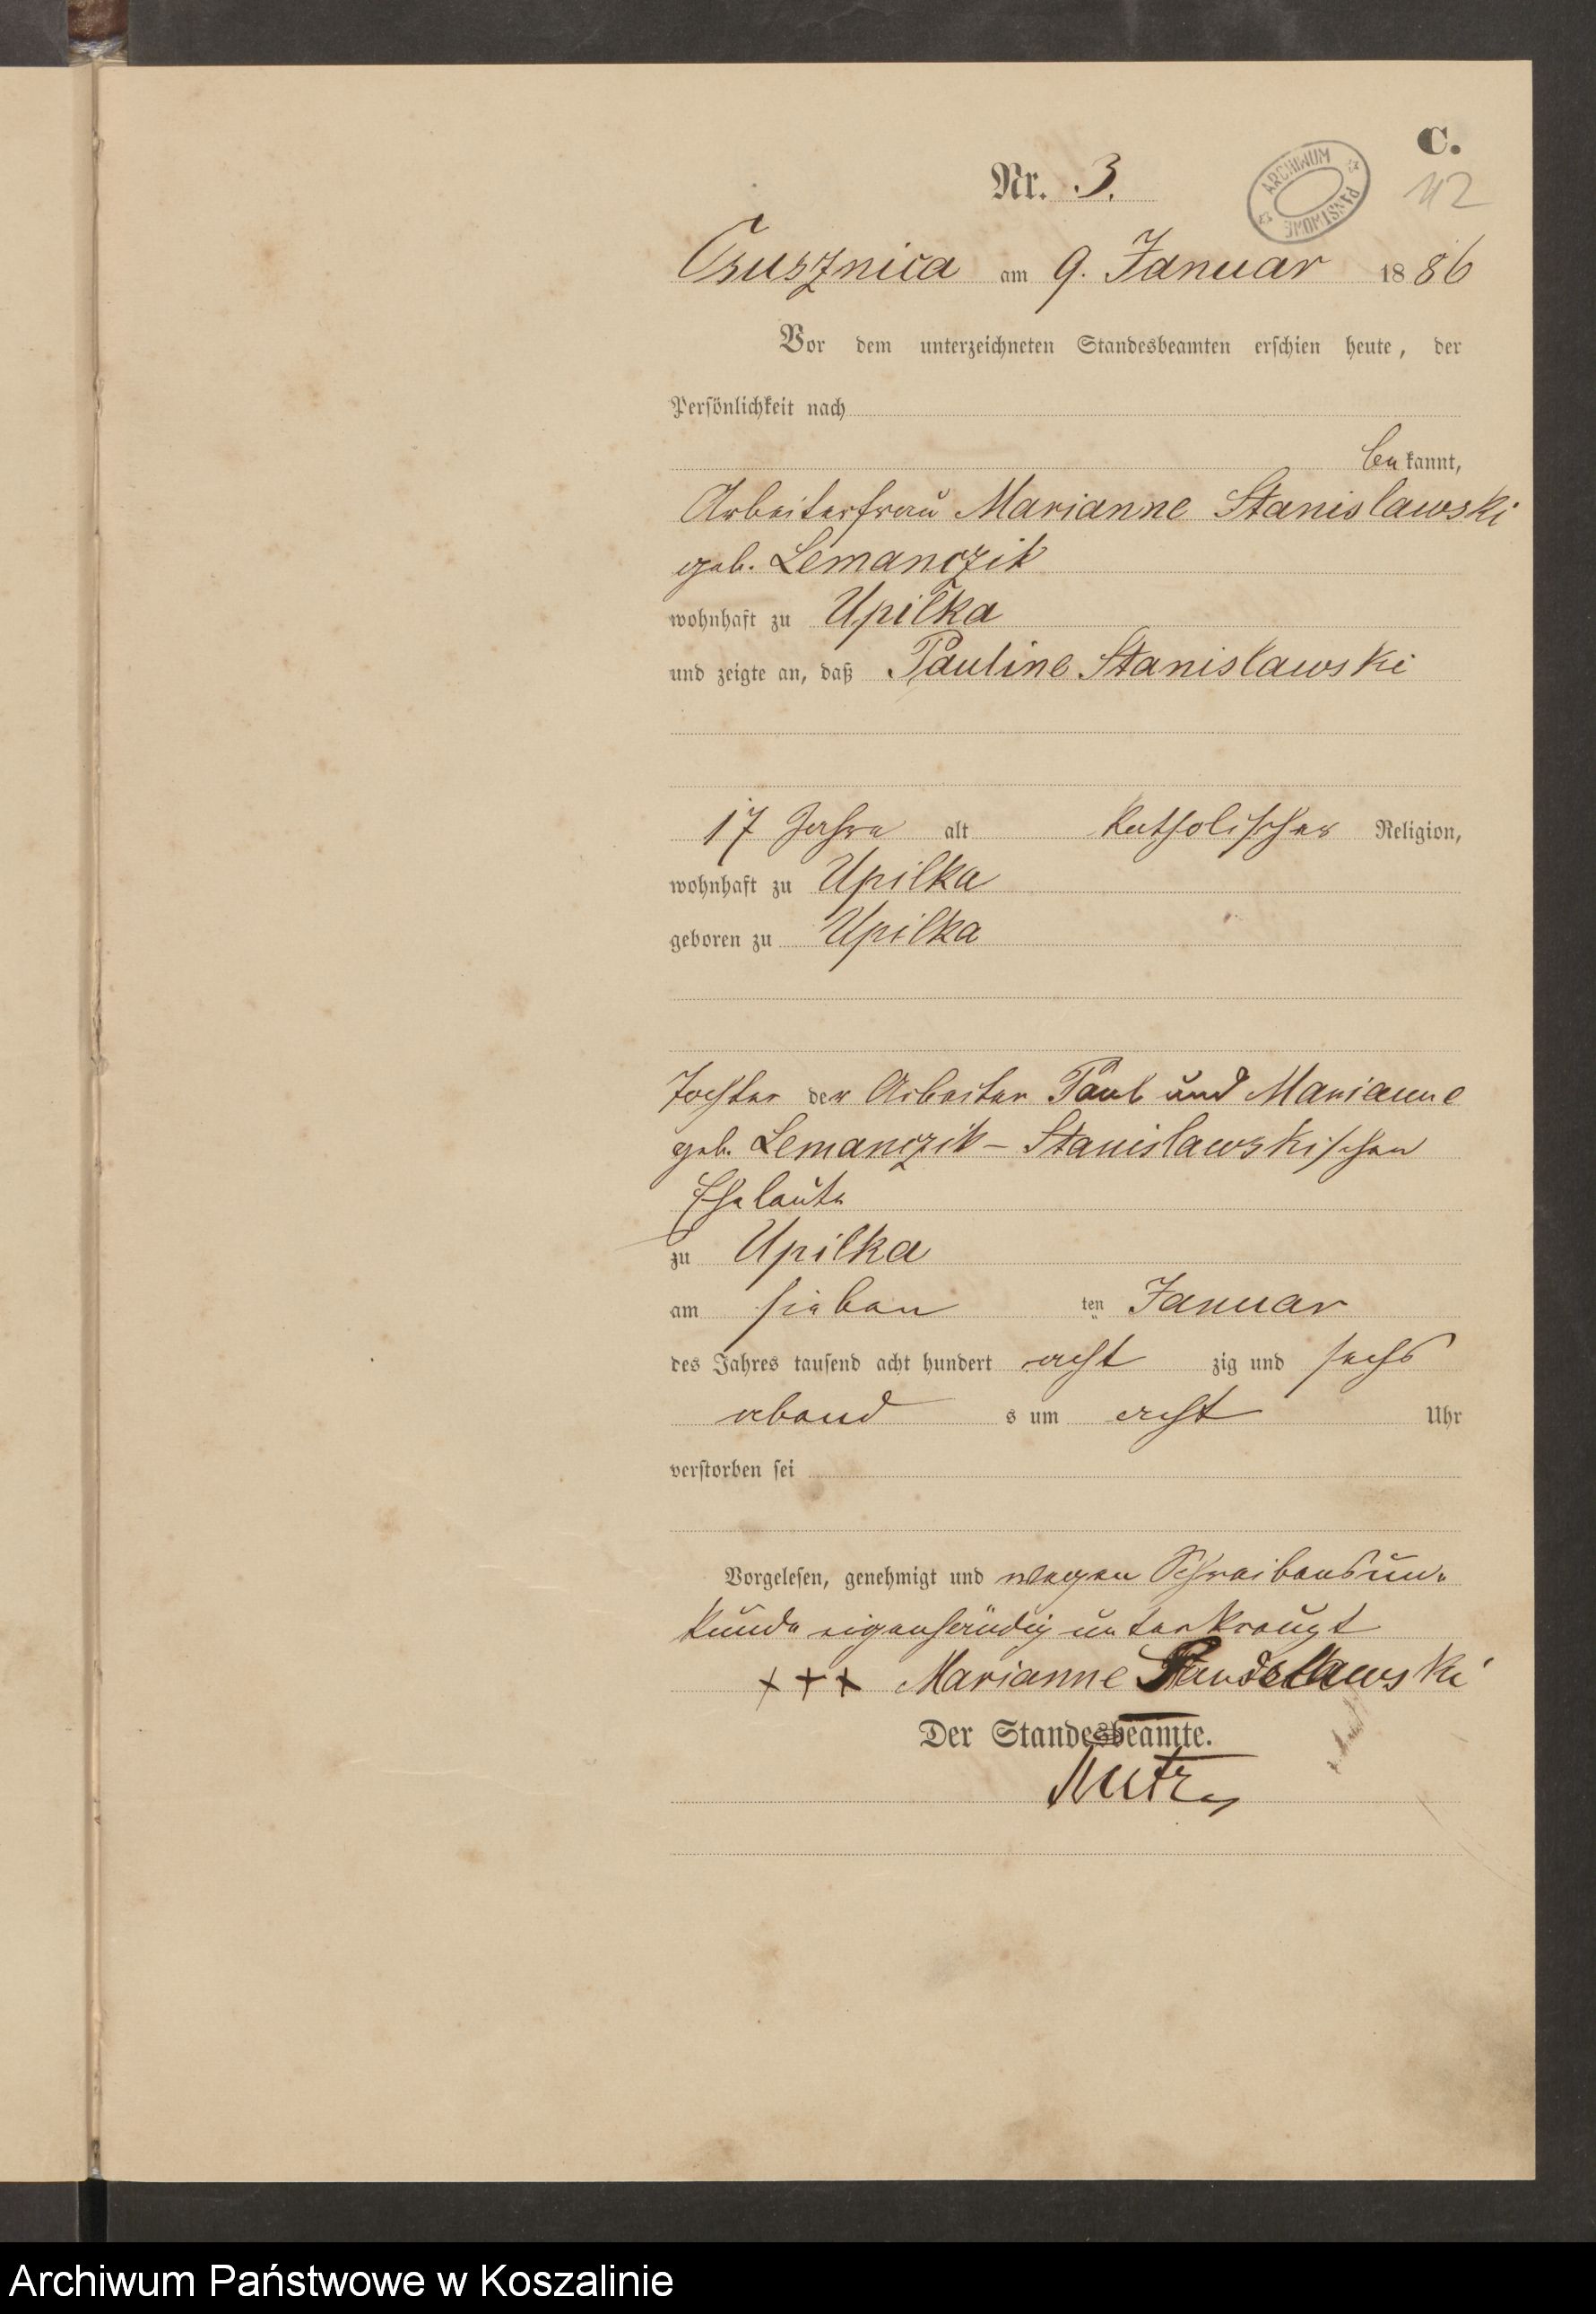 C.
Nr. 3.
ARCHIWUM PAŃSTWOWE
112
Osusznica am 9. Januar 1886
Vor dem unterzeichneten Standesbeamten erschien heute, der
Persönlichkeit nach
bekannt,
Arbeiterfrau Marianne Stanislawski
geb. Lemanczik
wohnhaft zu Upilka
und zeigte an, daß Pauline Stanislawski
17 Jahre alt katholischer Religion,
wohnhaft zu Upilka
geboren zu Upilka
Tochter der Arbeiter Paul und Marianne
geb. Lemanczik - Stanislawskischen
Eheleute
zu Upilka
am sieben ten Januar
des Jahres tausend acht hundert acht zig und sechs
abend s um acht Uhr
verstorben sei
Vorgelesen, genehmigt und wegen Schreibensun-
kunde eigenhändig unterkreuzt
+++ Marianne Stanislawski
Der Standesbeamte.
Archiwum Państwowe w Koszalinie